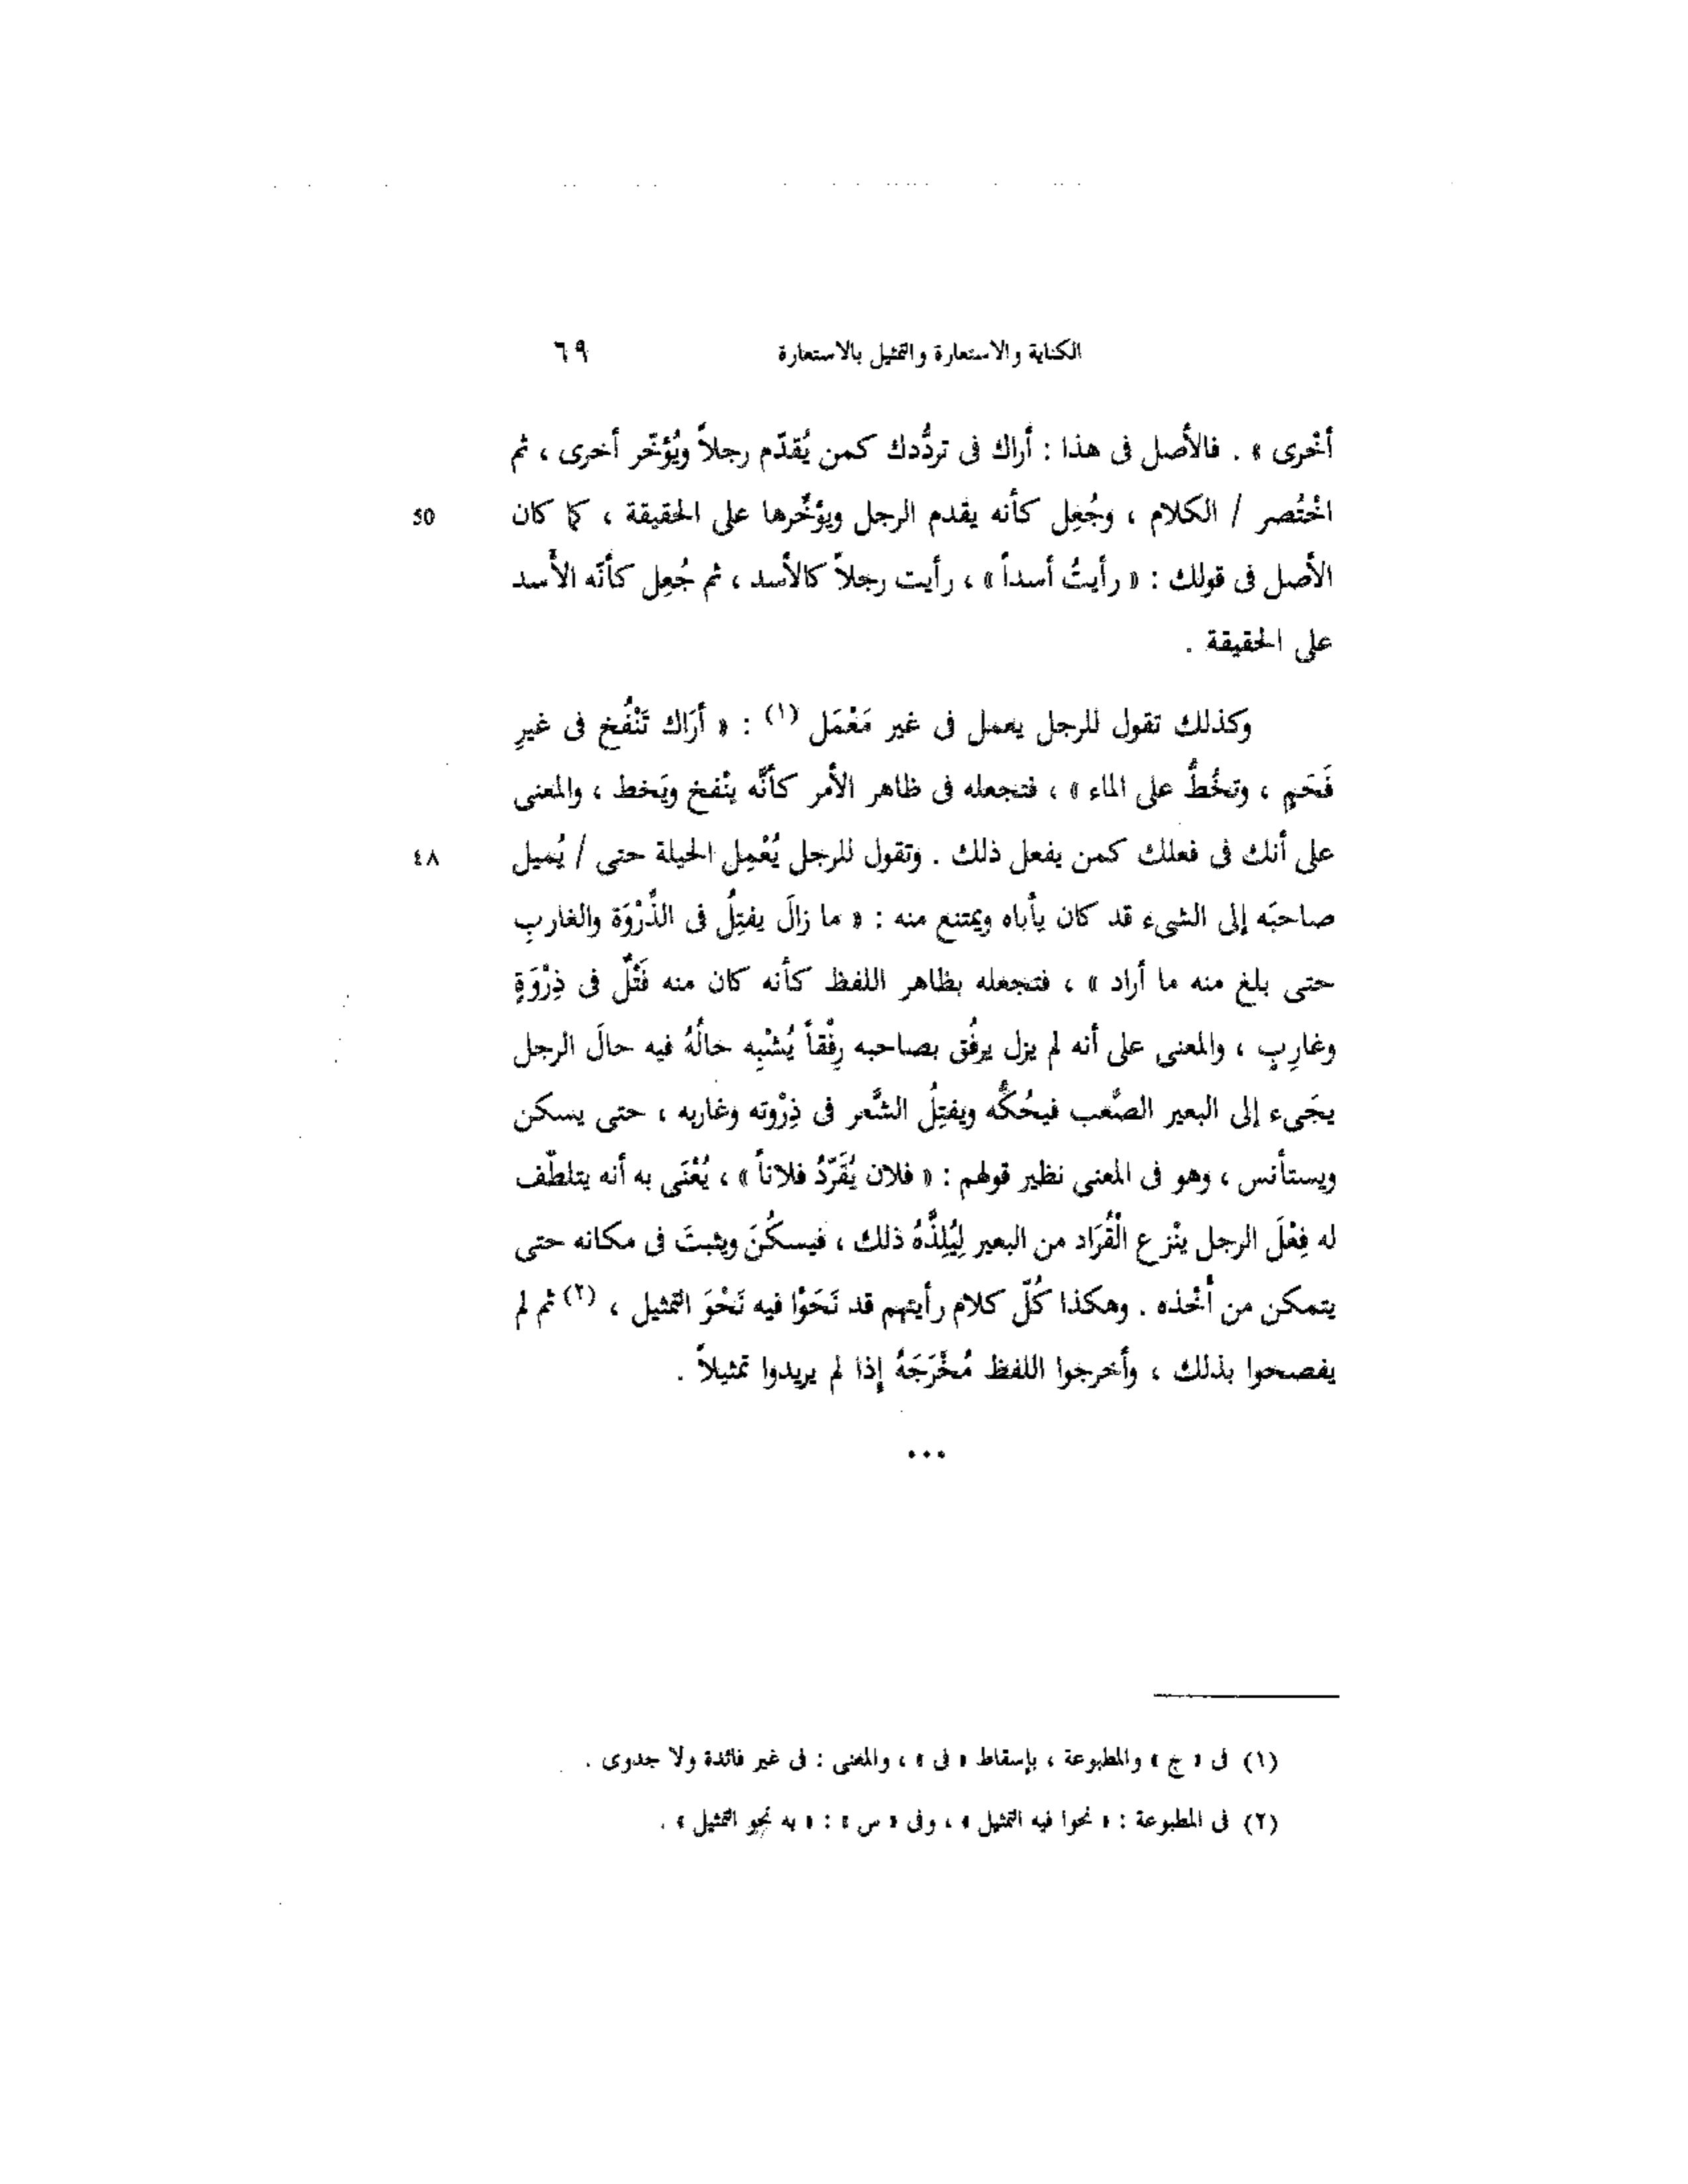 الكناية والاستعارة والتمثيل بالاستعارة ٦٩
أُخْرى » . فالأصل فى هذا : أَراك فى تردُّدك كمن يُقدّم رجلاً ويُؤخّر أخرى ، ثم
اخْتُصر / الكلام ، وجُعِل كأنه يقدم الرجل ويؤخِّرها على الحقيقة ، كما كان 50
الأصل فى قولك : « رأيتُ أسداً » ، رأيت رجلاً كالأسد ، ثم جُعِل كأنّه الأسد
على الحقيقة .
وكذلك تقول للرجل يعمل فى غير مَعْمَل (١) : « أَرَاك تَنْفُخ فى غيرِ
فَحَمٍ ، وتخُطُّ على الماء » ، فتجعله فى ظاهر الأمر كأنَّه ينْفخ ويَخط ، والمعنى
على أنك فى فعلك كمن يفعل ذلك . وتقول للرجل يُعْمِل الحيلة حتى / يُميل ٤٨
صاحبَه إلى الشىء قد كان يأباه ويمتنع منه : « ما زالَ يفتِلُ فى الذِّرْوَة والغاربِ
حتى بلغ منه ما أراد » ، فتجعله بظاهر اللفظ كأنه كان منه فَتْلٌ فى ذِرْوَةٍ
وغارِبٍ ، والمعنى على أنه لم يزل يرفُق بصاحبه رِفْقاً يُشْبِه حالُهُ فيه حالَ الرجل
يجَىء إلى البعير الصَّعب فيحُكُّه ويفتِلُ الشَّعر فى ذِرْوته وغاربه ، حتى يسكن
ويستأنس ، وهو فى المعنى نظير قولهم : « فلان يُقَرّدُ فلاناً » ، يُعْنَى به أنه يتلطّف
له فِعْلَ الرجل ينْزع الْقُرَاد من البعير لِيُلِذَّهُ ذلك ، فيسكُنَ ويثبتَ فى مكانه حتى
يتمكن من أَخْذه . وهكذا كُلّ كلام رأيتهم قد نَحَوْا فيه نَحْوَ التمثيل ، (٢) ثم لم
يفصحوا بذلك ، وأخرجوا اللفظ مُخْرَجَهُ إذا لم يريدوا تمثيلاً .
•••
(١) فى « ج » والمطبوعة ، بإسقاط « فى » ، والمعنى : فى غير فائدة ولا جدوى .
(٢) فى المطبوعة : « نحوا فيه التمثيل » ، وفى « س » : « به نحو التمثيل » .